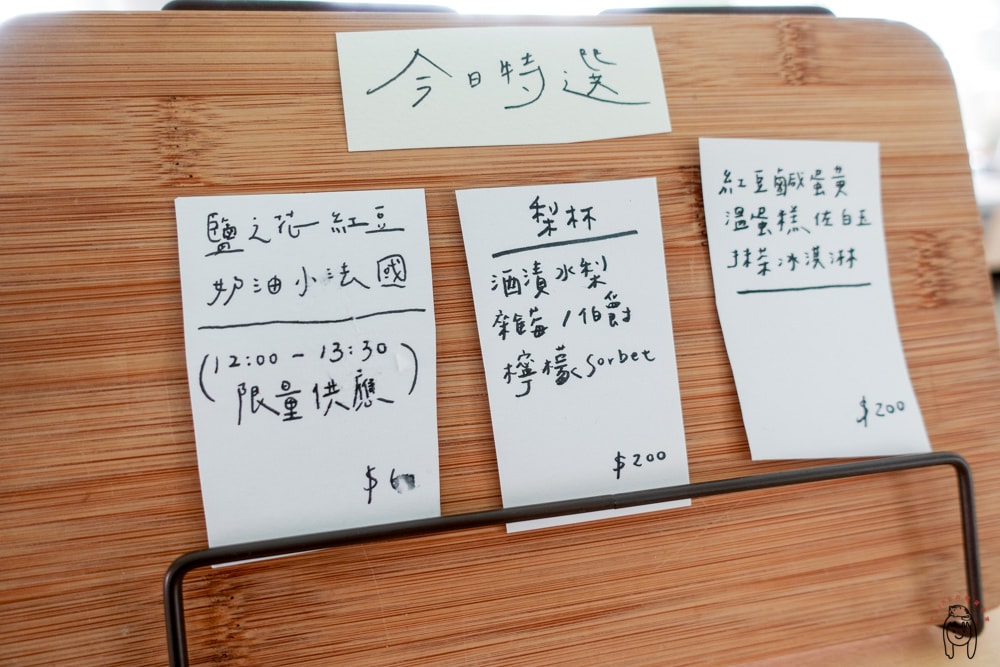 今日特選
鹽之花紅豆
奶油小法國
(12:00-13:30
限量供應)
$6
梨杯
酒漬水梨
雜莓/伯爵
檸檬Sorbet
$200
紅豆鹹蛋黃
溫蛋糕佐白玉
抹茶冰淇淋
$200